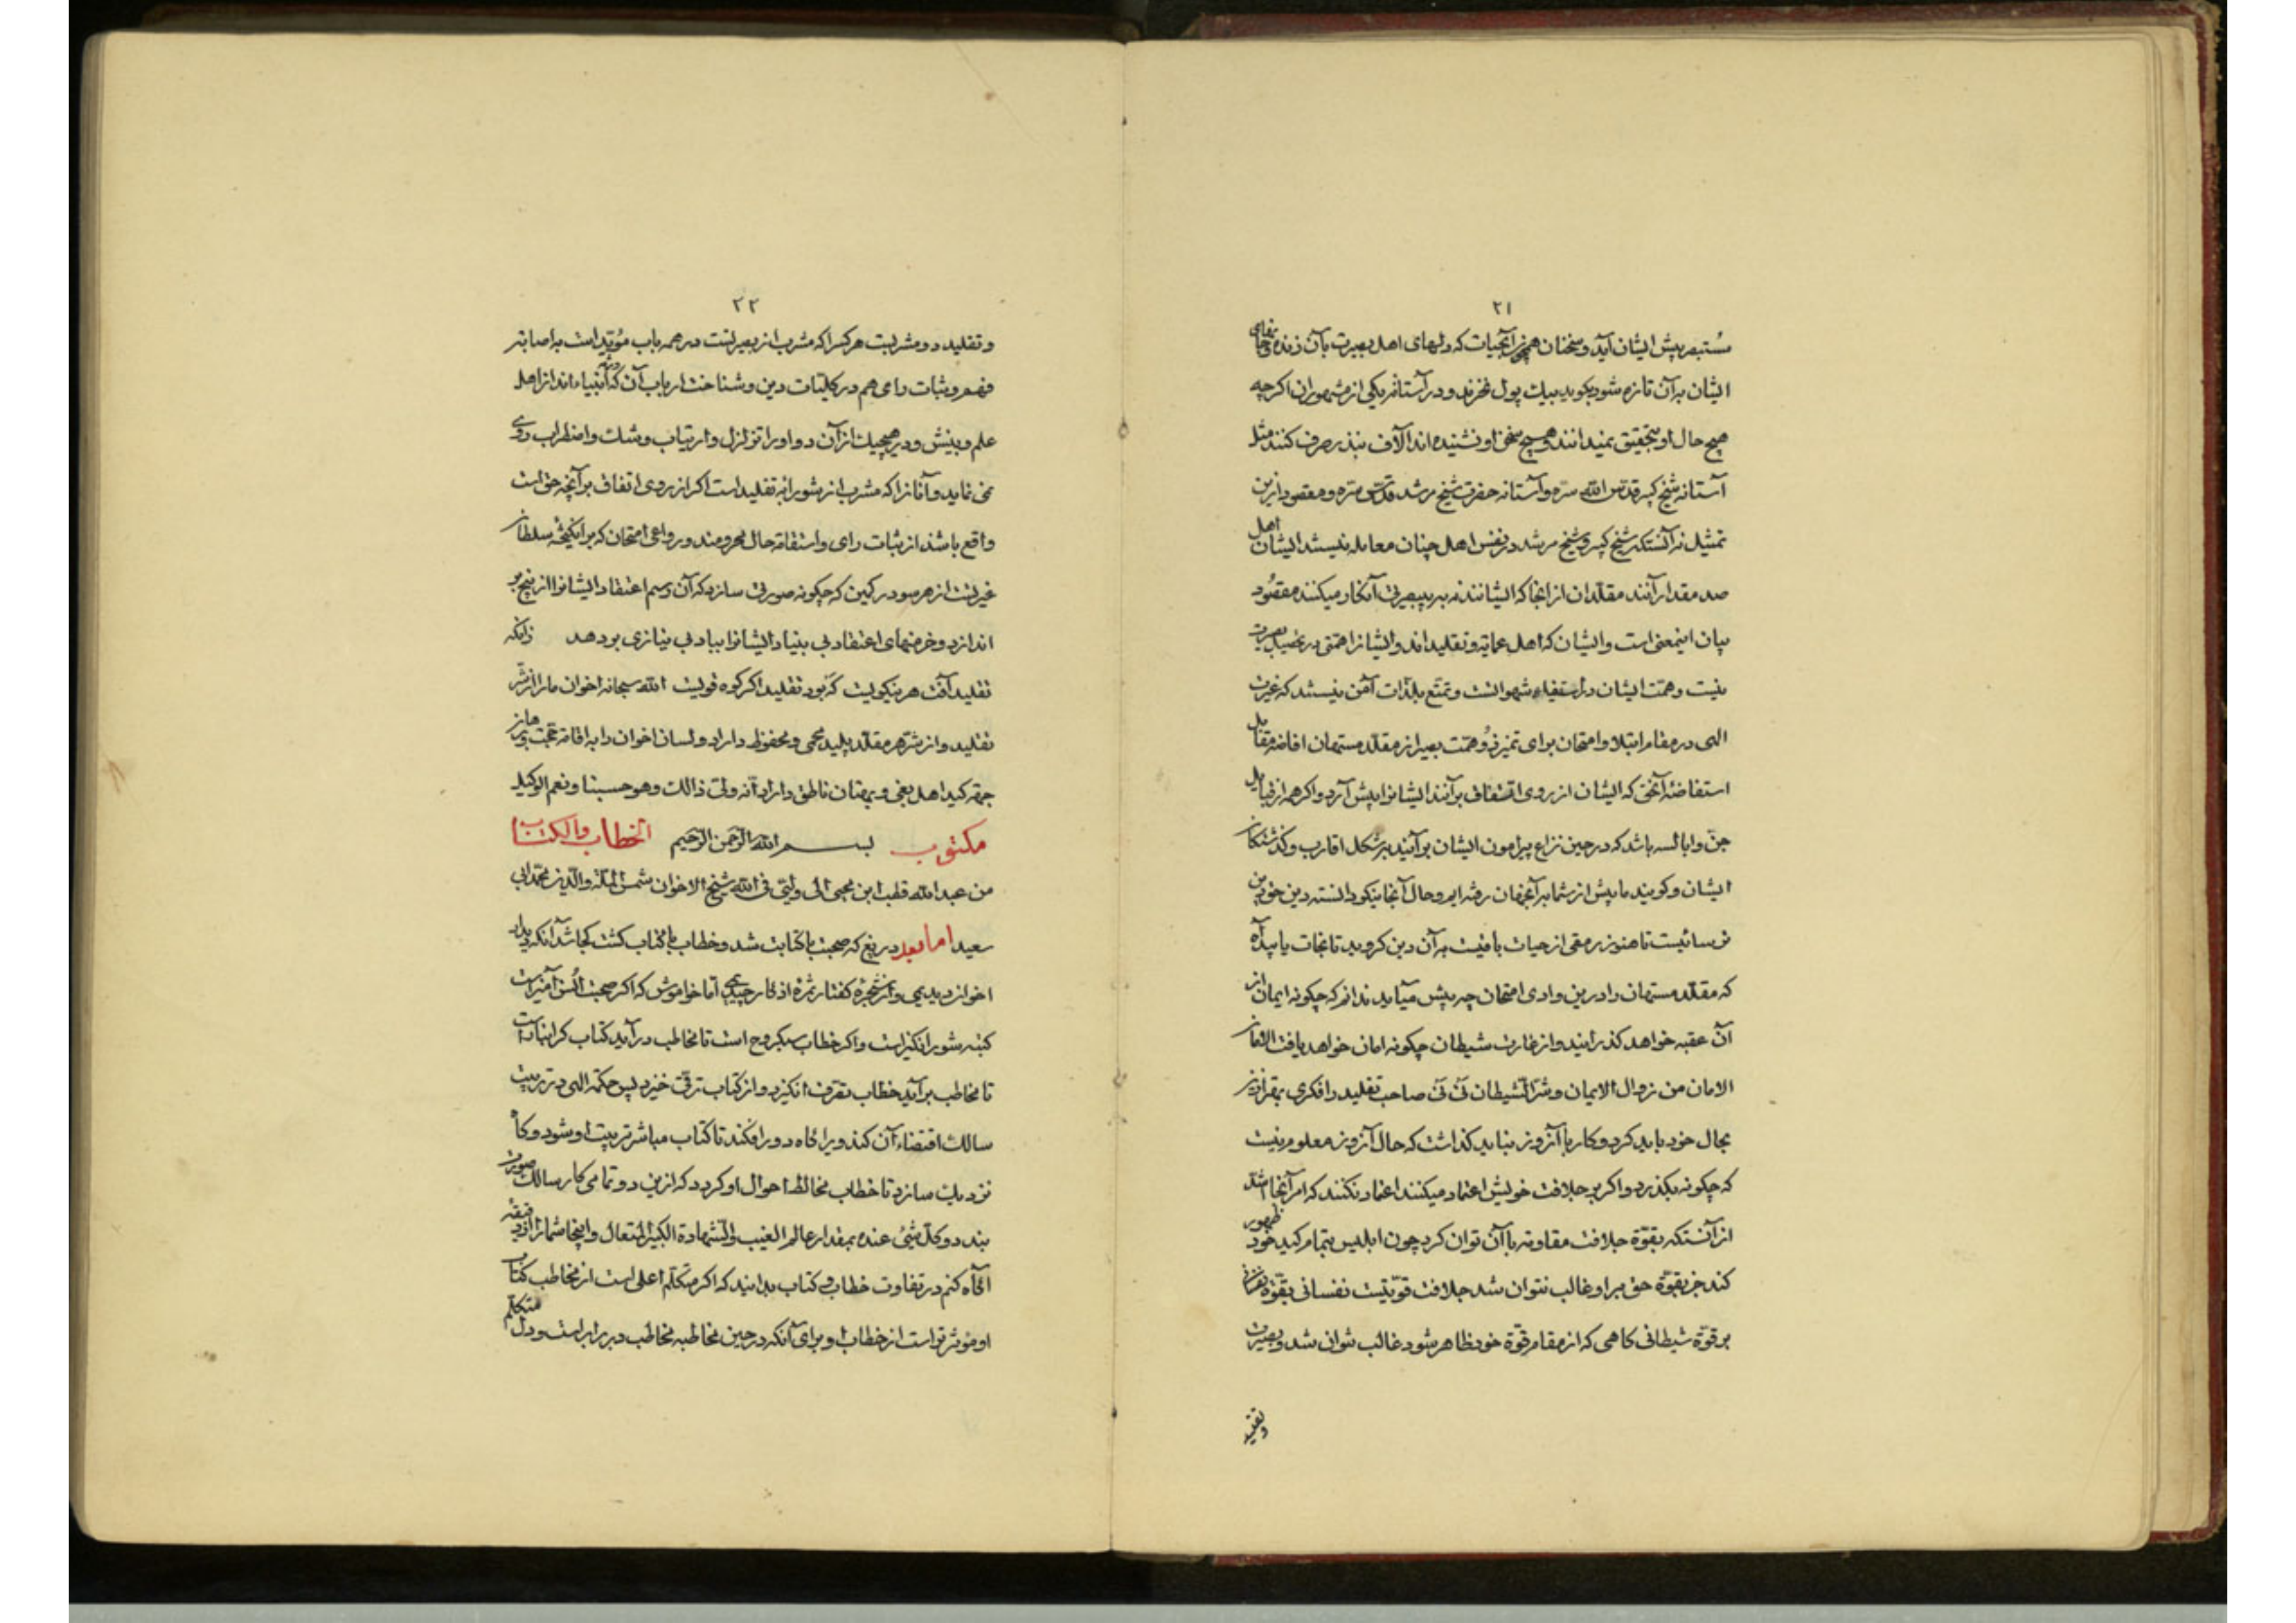 ۲۱
مستبصر پیش ایشان آید و سخنان همچون آبحیات که دلهای اهل بصیرت بآن زنده و جانهای
ایشان بر آن تازه شود بگوید بیک پول نخرند و در آستانه یکی از مشهوران اگر چه
هیچ حال او بتحقیق نمیدانند و هیچ سخن او نشنیده اند آلاف نذر صرف کنند مثل
آستانه شیخ کبیر قدس الله سره و آستانه حضرت شیخ مرشد قدس سره و مقصود ازین
تمثیل نه آنستکه شیخ کبیر و شیخ مرشد در نفس اهل چنان معامله نیستند ایشان اهل
صد مقدار آنند مقلدان از انجا که ایشانند نه بر بصیرتی آنکار میکنند مقصود
بیان اینمعنی است و ایشان که اهل عمایه و تقلید اند و ایشانرا همتی در تحصیل بصیرت
نیست و همت ایشان در استیفاء شهواتست و تمتع بلذات آمن نیستند که غیرت
الهی در مقام ابتلا و امتحان برای تمیز همت بصیر از مقلد مستهان افاضه مقابل
استفاضه آنخی که ایشان از روی اتفاق بر آنند ایشانرا پیش آرد و اگر همه از قبایل
جن و ابالسه باشد که در حین نزاع پیرامون ایشان بر آیند بر شکل اقارب و گذشتگان
ایشان و گویند ما پیش از شما بر آنجهان رفته ایم و حال آنجا نیکو دانسته دین خوب این
ترسائیست تا هنوز رمقی از حیات باقیست به آن دین گروید تا نجات یابید آه
که مقلد مستهان را درین وادی امتحان چه پیش میآید ندانم که چگونه ایمان از
آن عقبه خواهد گذرانید و از غارت شیطان چگونه امان خواهد یافت الامان
الامان من زوال الایمان و شر الشیطان نی نی صاحب تقلید را فکری بهتر ازین
بحال خود باید کرد و کار با آنروز نباید گذاشت که حال آنروز معلوم نیست
که چگونه بگذرد و اگر بر جلافت خویش اعتماد میکنند اعتماد نکنند که امر آنجا اشد
از آنستکه بقوة جلافت مقاومه با آن توان کرد چون ابلیس بتمام کید خود ظهور
کند جز بقوة حق بر او غالب نتوان شد جلافت قوتیست نفسانی بقوة نفسانی
بر قوة شیطانی گاهی که از مقام قوة خود ظاهر شود غالب نتوان شد و بصیرت
و تقلید
۲۲
و تقلید دو مشربست هر کسرا که مشرب از بصیرتست در همه باب مؤید است به اصابه
فهم و ثبات رای هم در کلیات دین و شناخت ارباب آن که انبیاء اند از اهل
علم و بینش و در هیچیک از آن دو او را تزلزل و ارتیاب و شک و اضطراب روی
نمی نماید و آنانرا که مشرب از شورابه تقلید است اگر از روی اتفاق بر آنچه حق است
واقع باشند از ثبات رای و استقامة حال محرومند و در وادی امتحان که بر انگیخته سلطان
غیرتست از هر سو در کمین که چگونه صورتی سازد که آن رسم اعتقاد ایشانرا از بیخ بر
اندازد و خرمنهای اعتقاد بی بنیاد ایشانرا بباد بی نیازی بر دهد زانکه
تقلید آفت هر نیکویست که بود تقلید اگر کوه قویست الله سبحانه اخوان ما را از شر
تقلید و از شر هر مقلد پلید محمی و محفوظ داراد و لسان اخوان را به اقامة حجت و برهان
جهة کید اهل بغی و بهتان ناطق داراد انه ولی ذالک و هو حسبنا و نعم الوکیل
مکتوب بسم الله الرحمن الرحیم الخطاب والکتاب
من عبد الله قطب ابن محیی الی ولیی فی الله شیخ الاخوان شمس الملة والدین محمد ابی
سعید اما بعد دریغ که صحبت با کتابت شد و خطاب با کتاب گشت کجا شد آنکه دیدار
اخوان دیدیمی و از شجره گفتار ثمره اذکار چیدیمی اما خاموش که اگر صحبت انس آمیز است
کتبه شور انگیز است و اگر خطاب سبکروح است تا مخاطب در آید کتاب گرانبار است
تا مخاطب بر آید خطاب تفرق انگیزد و از کتاب ترقی خیزد پس حکمة الهی در تربیت
سالک اقتضاء آن کند ویرا گاه دور افکند تا کتاب مباشر تربیت او شود و گاه
نزدیک سازد تا خطاب مخالط احوال او گردد که ازین دو تمامی کار سالک صورت
بندد و کل شئ عنده بمقدار عالم الغیب والشهادة الکبیر المتعال و اینجا شما را از دقیقه
آگاه کنم در تفاوت خطاب و کتاب بدانید که اگر متکلم اعلی است از مخاطب کتاب
او مؤثر تر است از خطاب او برای آنکه در حین مخاطبه مخاطب در برابر است و دل متکلم